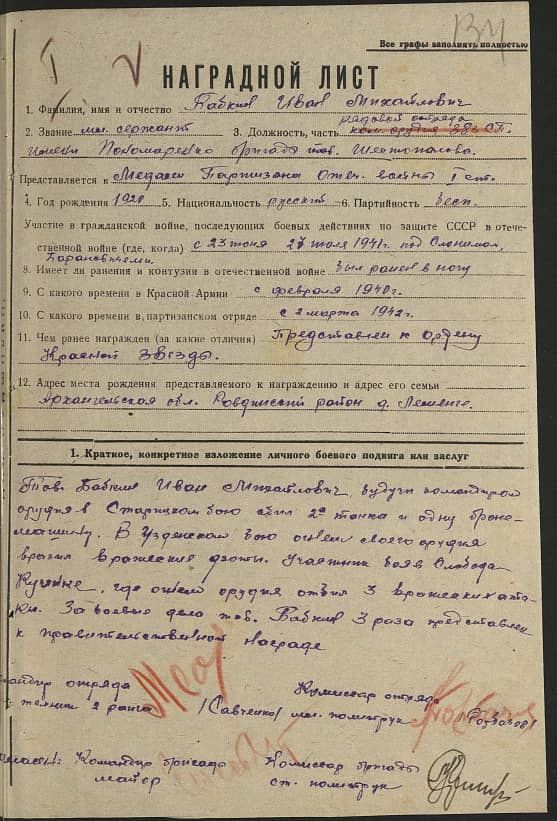 Все графы заполнять полностью
НАГРАДНОЙ ЛИСТ
1. Фамилия, имя и отчество Бабкин Иван Михайлович
рядовой отряда
2. Звание мл. сержант 3. Должность, часть ком. орудия
имени Пономаренко бригада тов. Шестопалова.
Представляется к Медали Партизана Отеч. войны I ст.
4. Год рождения 1920 5. Национальность русский 6. Партийность бесп.
Участие в гражданской войне, последующих боевых действиях по защите СССР в отече-
ственной войне (где, когда) с 23 июня 27 июля 1941 г. под Слонимом,
Барановичами
8. Имеет ли ранения и контузии в отечественной войне был ранен в ногу
9. С какого времени в Красной Армии с февраля 1940 г.
10. С какого времени в партизанском отряде с 2 марта 1942 г.
11. Чем ранее награжден (за какие отличия) Представлен к ордену
Красной Звезды.
12. Адрес места рождения представляемого к награждению и адрес его семьи
Архангельская обл. Ровдинский район д.
1. Краткое, конкретное изложение личного боевого подвига или заслуг
Тов. Бабкин Иван Михайлович, будучи командиром
орудия в Старицком бою сбил 2 танка и одну броне-
машину. В Узденском бою огнем своего орудия
вражеские дзоты. Участник боя в Слобода
Кучинке, где огнем орудия отбил 3 вражеских ата-
ки. За боевые дела тов. Бабкин 3 раза представлен
к правительственной награде
отряда Комиссар отряда
техник 2 ранга /Савченко/ мл. политрук
Командир бригады Комиссар бригады
майор ст. политрук